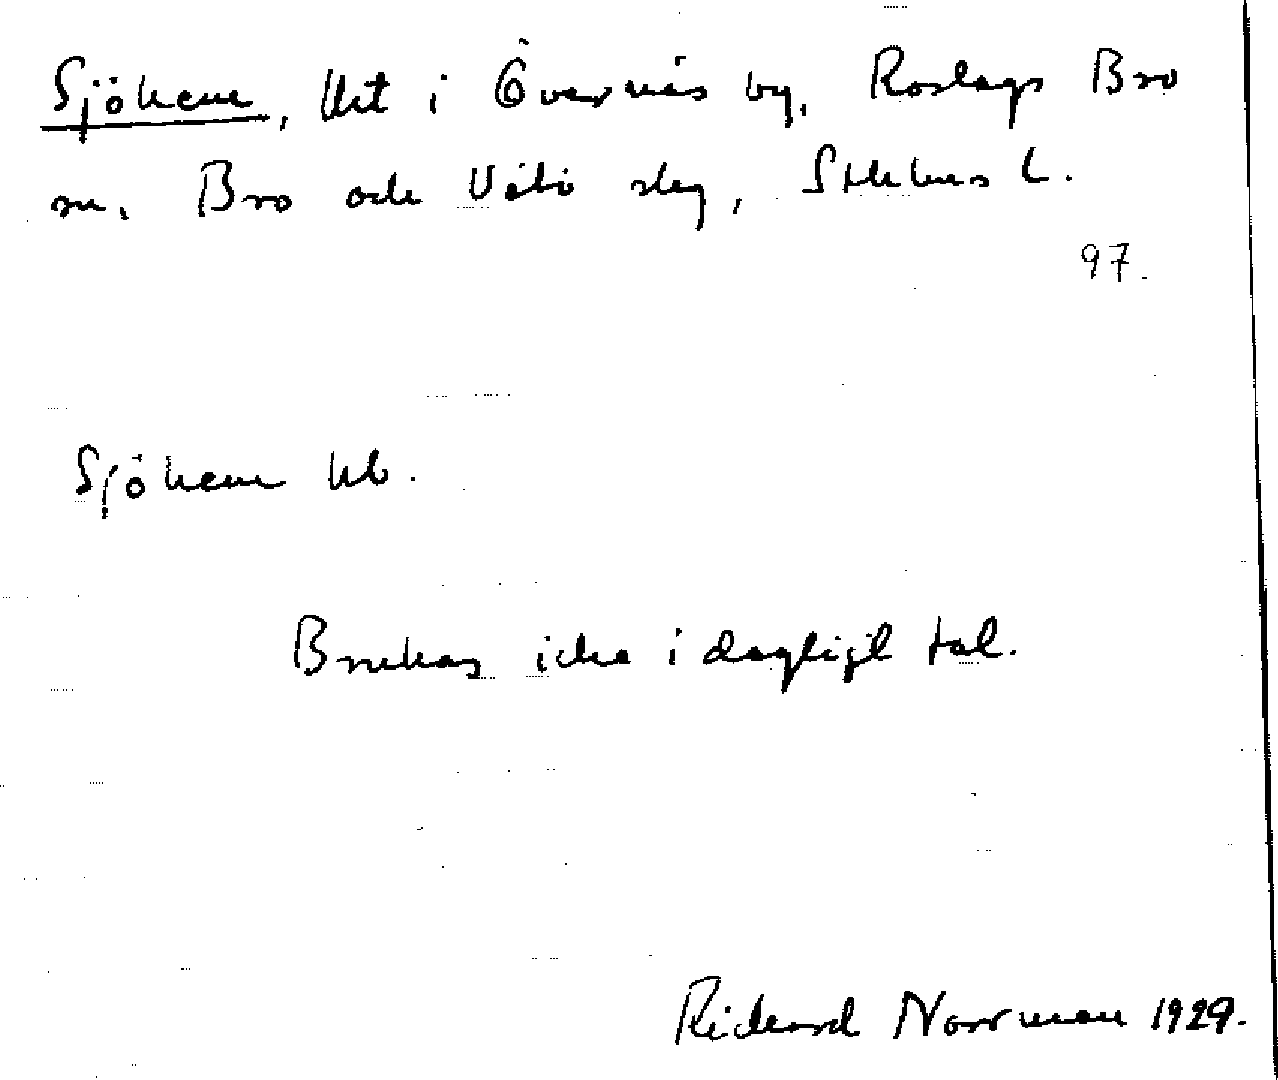 Sjöhem, lht i Övernäs by, Roslags Bro
sn. Bro och Vätö skg, Sthlms l.
97.
Sjöhem kb.
Brukas icke i dagligt tal.
Richard Norrman 1929.